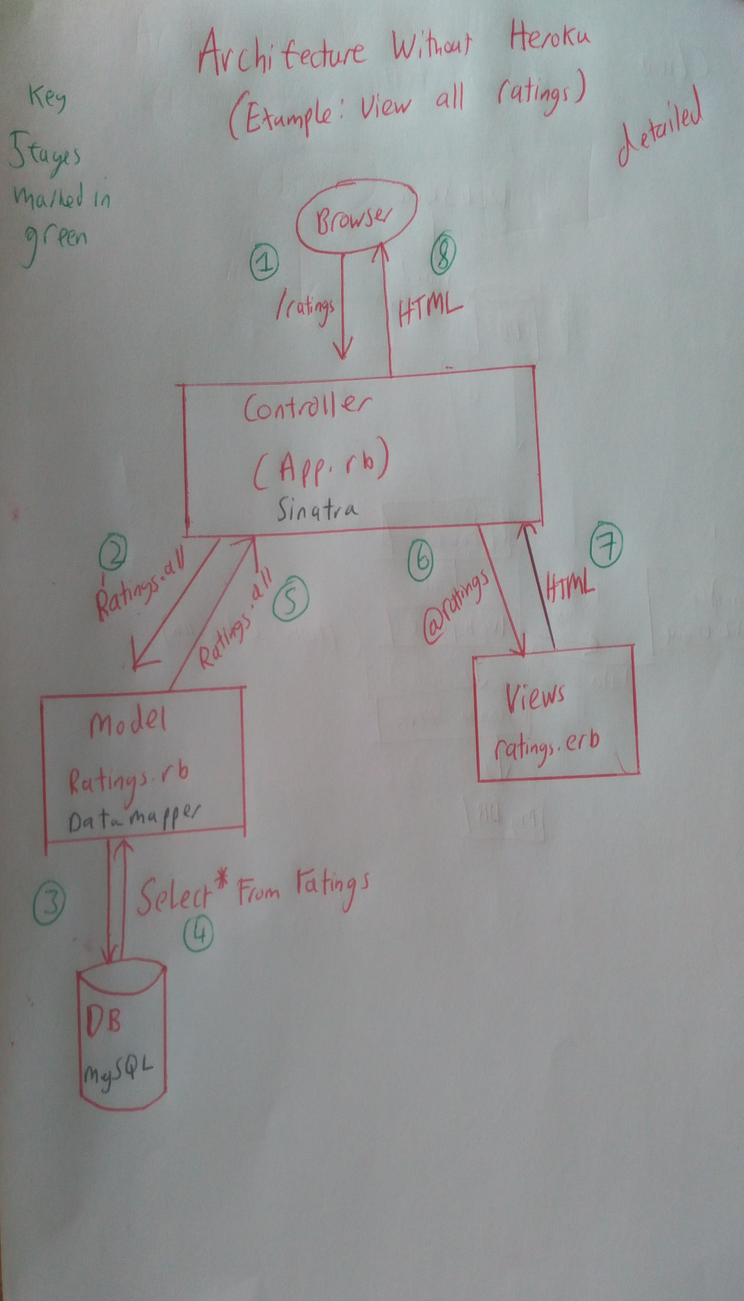 Architecture Without Heroku
(Example: View all ratings)
detailed
Key
Stages
marked in
green
Browser
1
8
/ratings
HTML
Controller
(App.rb)
Sinatra
2
Ratings.all
5
Ratings.all
6
@ratings
7
HTML
Model
Ratings.rb
Datamapper
Views
ratings.erb
3
Select * From ratings
4
DB
MySQL